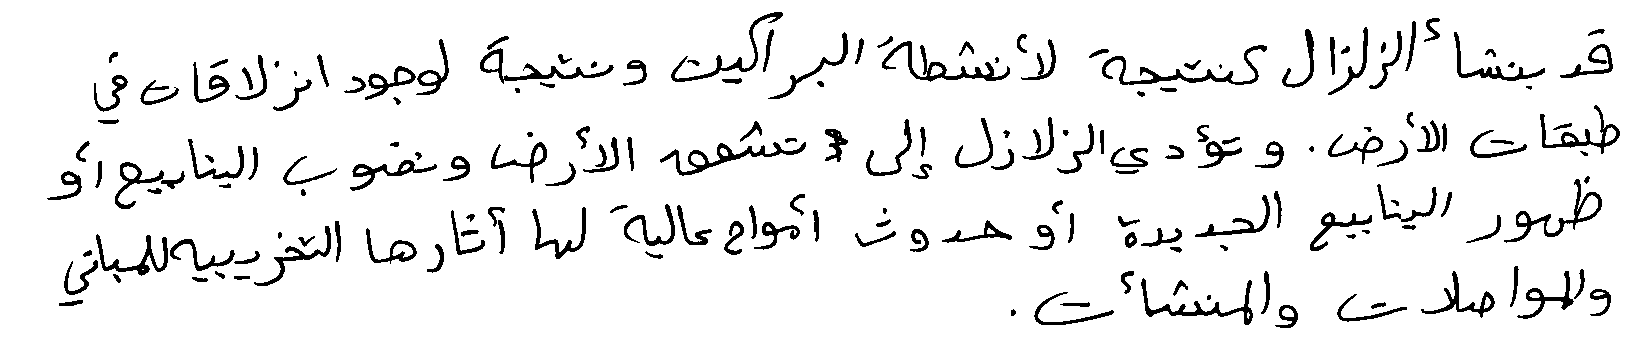 قد ينشأ الزلزال كنتيجة لأنشطة البراكين ونتيجة لوجود انزلاقات في
طبقات الأرض. وتؤدي الزلازل إلى تشقق الأرض ونضوب الينابيع أو
ظهور الينابيع الجديدة أو حدوث أمواج عالية لها آثارها التخريبيه للمباني
والمواصلات والمنشأت.